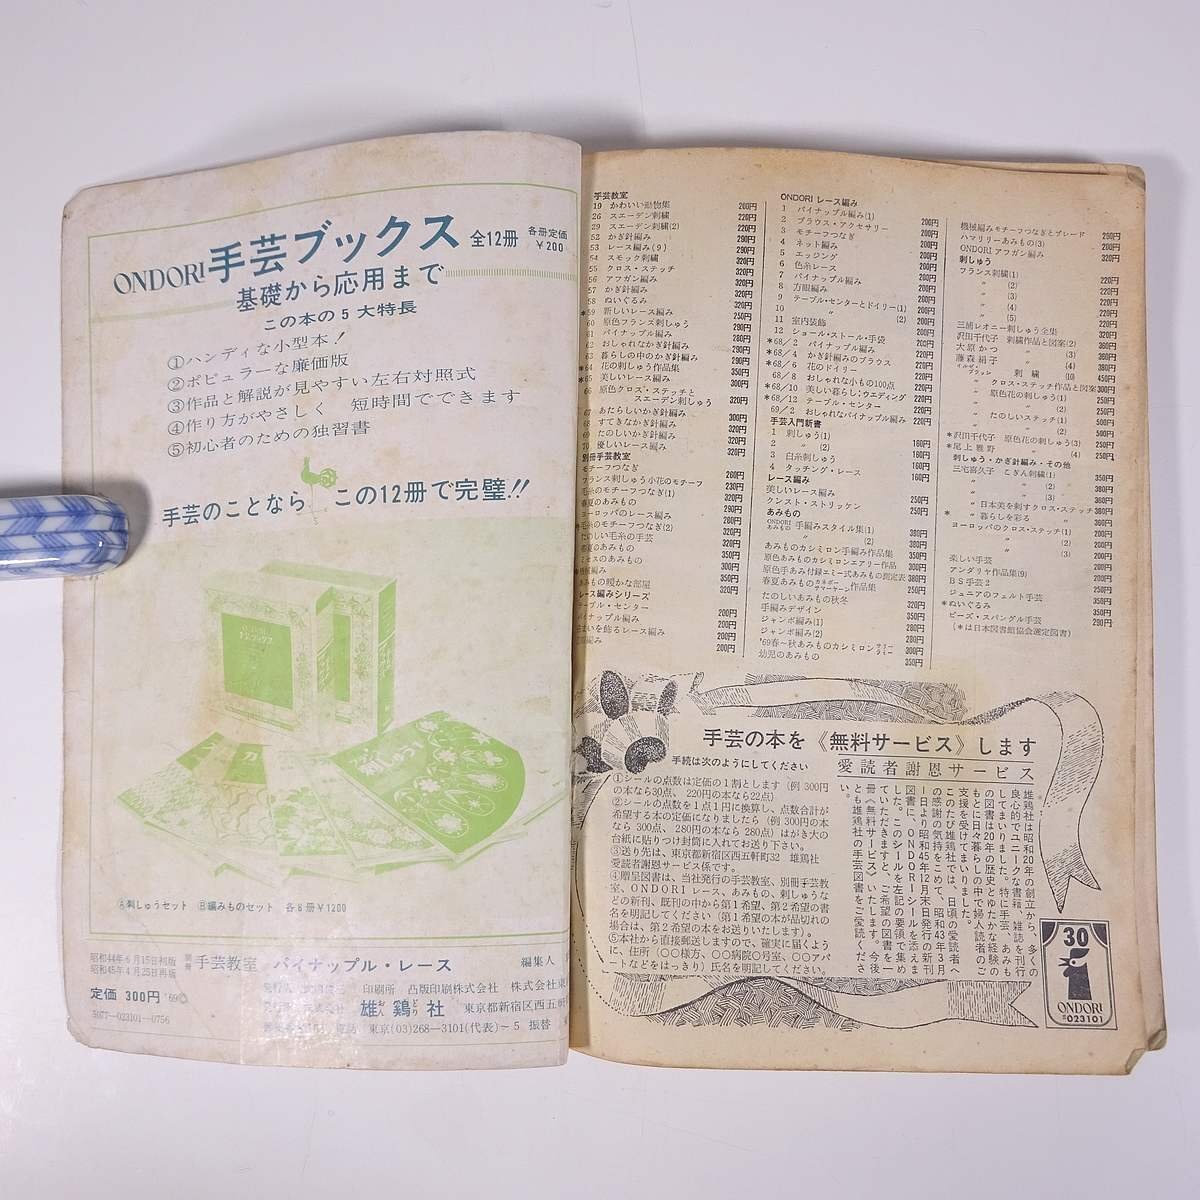 ONDORI手芸ブックス 全12冊 各冊定価¥200
基礎から応用まで
この本の5大特長
①ハンディな小型本!
②ポピュラーな廉価版
③作品と解説が見やすい左右対照式
④作り方がやさしく 短時間でできます
⑤初心者のための独習書
手芸のことなら この12冊で完璧!!
Ⓐ刺しゅうセット Ⓑ編みものセット 各8冊¥1200
昭和44年6月15日初版
昭和45年4月25日再版
別冊 手芸教室 パイナップル・レース 編集人
定価 300円 '69©
印刷所 凸版印刷株式会社 株式会社東
雄鶏社 東京都新宿区西五軒
5077-023101-0756
電話 東京(03)268-3101(代表)~5 振替
手芸教室
19 かわいい動物集 200円
26 スエーデン刺繍 220円
29 スエーデン刺繍(2) 220円
52 かぎ針編み 290円
53 レース編み(9) 290円
54 スモック刺繍 320円
55 クロス・ステッチ 320円
56 アフガン編み 320円
57 かぎ針編み 320円
58 ぬいぐるみ 320円
*59 新しいレース編み
60 原色フランス刺しゅう
61 パイナップル編み
62 おしゃれなかぎ針編み
63 暮らしの中のかぎ針編み
*64 花の刺しゅう作品集
*65 美しいレース編み
66 原色クロス・ステッチと
スエーデン刺しゅう 320円
67 あたらしいかぎ針編み 300円
68 すてきなかぎ針編み
69 たのしいかぎ針編み
70 優しいレース編み
別冊手芸教室
モチーフつなぎ 260円
フランス刺しゅう小花のモチーフ 230円
毛糸のモチーフつなぎ(1)
春夏のあみもの
ヨーロッパのレース編み
毛糸のモチーフつなぎ(2)
たのしい毛糸の手芸
春夏のあみもの
あみもの暖かな部屋
レース編みシリーズ
テーブル・センター 200円
パイナップル編み 200円
ONDORI レース編み
1 パイナップル編み(1) 200円
2 ブラウス・アクセサリー
3 モチーフつなぎ
4 ネット編み
5 エッジング
6 色糸レース
7 パイナップル編み
8 方眼編み
9 テーブル・センターとドイリー(1)
10 〃 (2)
11 室内装飾
12 ショール・ストール・手袋
*68/2 パイナップル編み
*68/4 かぎ針編みのブラウス
*68/6 花のドイリー
68/8 おしゃれな小もの100点
*68/10 美しい暮らし;ウエディング
*68/12 テーブル・センター
69/2 おしゃれなパイナップル編み 220円
手芸入門新書
1 刺しゅう(1) 160円
2 〃 (2) 160円
3 白糸刺しゅう 160円
4 タッチング・レース 160円
レース編み
美しいレース編み 250円
クンスト・ストリッケン 250円
あみもの
ONDORIあみもの 手編みスタイル集(1) 380円
〃 (2)
あみものカシミロン手編み作品集 350円
原色あみものカシミロンエアリー作品
原色手あみ付録エミー式あみもの測定表 380円
春夏あみものカネボーアマーヤーン作品集 250円
たのしいあみもの秋冬
手編みデザイン 320円
ジャンボ編み(1) 350円
ジャンボ編み(2) 280円
'69春~秋あみものカシミロン 300円
幼児のあみもの 350円
機械編みモチーフつなぎとブレード 290円
ハマリリーあみもの(3) 200円
ONDORI アフガン編み 320円
刺しゅう
フランス刺繍(1) 220円
〃 (2) 220円
〃 (3) 220円
〃 (4) 220円
〃 (5) 220円
三浦レオニー刺しゅう全集 320円
沢田千代子 刺繍作品と図案(2) 380円
大原かつ 〃 (3) 360円
藤森絹子 〃 (4) 380円
イルゼ・ブラッシ 刺繍 (10) 450円
〃 クロス・ステッチ作品と図案 300円
〃 原色花の刺しゅう(1) 250円
〃 〃 (2) 250円
〃 たのしいステッチ(1) 250円
〃 〃 (2) 250円
*沢田千代子 原色花の刺しゅう(3) 250円
*尾上雅野 〃 (4) 250円
刺しゅう・かぎ針編み・その他
三宅喜久子 こぎん刺繍(1) 350円
〃 〃 (2)
〃 日本美を刺すクロス・ステッチ 380円
* 〃 暮らしを彩る 〃
ヨーロッパのクロス・ステッチ(1) 200円
〃 (2) 200円
〃 (3) 200円
楽しい手芸 350円
アンダリヤ作品集(9) 230円
BS手芸2 250円
ジュニアのフェルト手芸 350円
*ぬいぐるみ 350円
ビーズ・スパングル手芸 290円
(*は日本図書館協会選定図書)
手芸の本を《無料サービス》します
手続は次のようにしてください
愛読者謝恩サービス
①シールの点数は定価の1割とします(例 300円
の本なら30点、220円の本なら22点)
②シールの点数を1点1円に換算し、点数合計が
希望する本の定価になりましたら(例 300円の本
なら 300点、280円の本なら 280点)はがき大の
台紙に貼りつけ封筒に入れてお送り下さい。
③送り先は、東京都新宿区西五軒町32 雄鶏社
愛読者謝恩サービス係です。
④贈呈図書は、当社発行の手芸教室、別冊手芸教
室、ONDORI レース、あみもの、刺しゅうなど
の新刊、既刊の中から第1希望、第2希望の書
名を明記してください(第1希望の本が品切れの
場合は、第2希望の本をお送りいたします)。
⑤本社から直接郵送しますので、確実に届くよう
に、住所(〇〇様方、〇〇病院〇号室、〇〇アパ
ートなどをはっきり)氏名を明記してください。
雄鶏社は昭和20年の創立から、多くの
良心的でユニークな書籍、雑誌を刊行
してまいりました。特に手芸、あみも
の図書は20年の歴史とゆたかな経験の
もとに日々暮らしの中で婦人読者のご
支援を受けてまいりました。
このたび雄鶏社では、日頃の愛読者へ
の感謝の気持をこめて、昭和43年3月
1日より昭和45年12月末日発行の新刊
図書に、ONDORIシールを添えま
した。このシールを左記の要領で集め
ていただきますと、ご希望の図書を一
冊《無料サービス》いたします。今後
とも雄鶏社の手芸図書をご愛読くださ
い。
30
ONDORI
023101